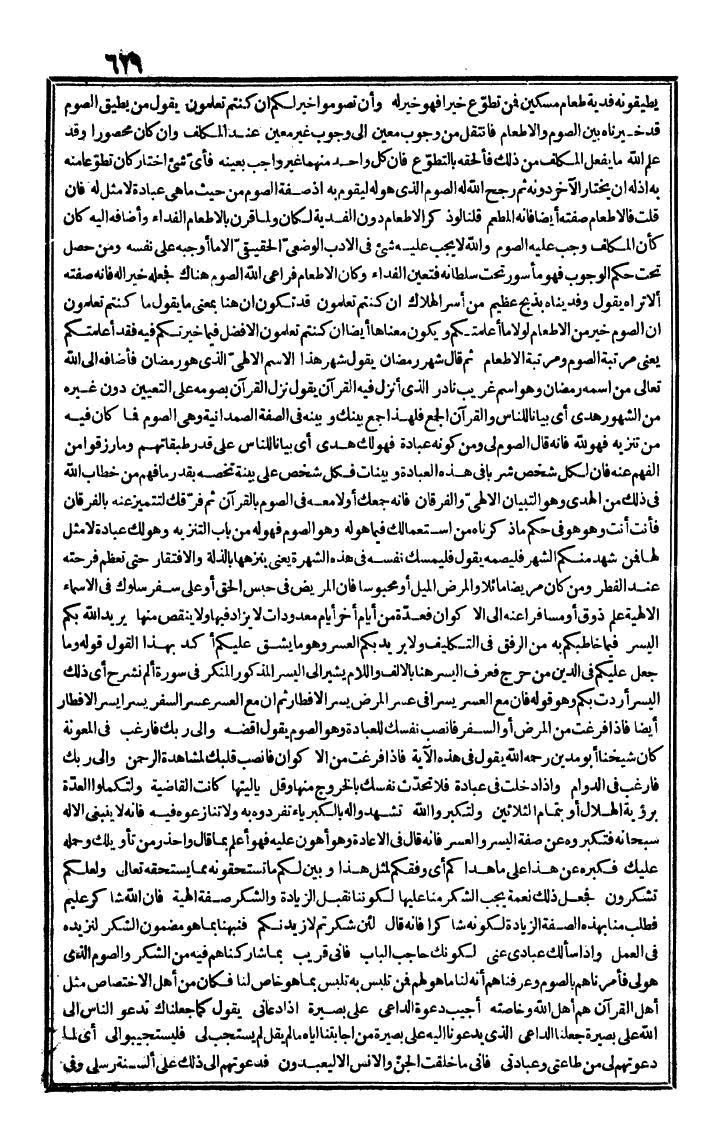 ٦٢٩
يطيقونه فدية طعام مسكين فمن تطوّع خيرا فهو خير له وأن تصوموا خير لكم ان كنتم تعلمون يقول من يطيق الصوم
قد خيرناه بين الصوم والاطعام فانتقل من وجوب معين الى وجوب غير معين عند المكلف وان كان محصورا وقد
علم الله ما يفعل المكلف من ذلك فألحقه بالتطوّع فان كل واحد منهما غير واجب بعينه فأىّ شئ اختار كان تطوّعا منه
به اذله ان يختار الآخر دونه ثم رجح الله له الصوم الذى هو له ليقوم به اذ صفة الصوم من حيث ما هى عبادة لا مثل له فان
قلت فالاطعام صفته أيضا فانه المطعم قلنا لو ذكر الاطعام دون الفدية لكان ولما قرن بالاطعام الفداء وأضافه اليه كان
كأن المكلف وجب عليه الصوم والله لا يجب عليه شئ فى الادب الوضعىّ الحقيقىّ الا ما أوجبه على نفسه ومن حصل
تحت حكم الوجوب فهو مأسور تحت سلطانه فتعين الفداء وكان الاطعام فراعى الله الصوم هناك فجعله خيرا له فانه صفته
ألا تراه يقول وفديناه بذبح عظيم من أسر الهلاك ان كنتم تعلمون قد تكون ان هنا بمعنى ما يقول ما كنتم تعلمون
ان الصوم خير من الاطعام لولا ما أعلمتكم ويكون معناها أيضا ان كنتم تعلمون الافضل فيما خيرتكم فيه فقد أعلمتكم
يعنى مرتبة الصوم ومرتبة الاطعام ثم قال شهر رمضان يقول شهر هذا الاسم الالهىّ الذى هو رمضان فأضافه الى الله
تعالى من اسمه رمضان وهو اسم غريب نادر الذى أنزل فيه القرآن يقول نزل القرآن بصومه على التعيين دون غيره
من الشهور هدى أى بيانا للناس والقرآن الجمع فلهذا جمع بينك وبينه فى الصفة الصمدانية وهى الصوم فما كان فيه
من تنزيه فهو لله فانه قال الصوم لى ومن كونه عبادة فهو لك هدى أى بيانا للناس على قدر طبقاتهم وما رزقوا من
الفهم عنه فان لكل شخص شربا فى هذه العبادة وبينات فكل شخص على بينة تخصه بقدر ما فهم من خطاب الله
فى ذلك من الهدى وهو التبيان الالهىّ والفرقان فانه جمعك أولا معه فى الصوم بالقرآن ثم فرّقك لتتميز عنه بالفرقان
فأنت أنت وهو هو فى حكم ما ذكرناه من استعمالك فيما هو له وهو الصوم فهو له من باب التنزيه وهو لك عبادة لا مثل
لها فمن شهد منكم الشهر فليصمه يقول فليمسك نفسه فى هذه الشهرة يعنى ينزهها بالذلة والافتقار حتى تعظم فرحته
عند الفطر ومن كان مريضا مائلا والمرض الميل أو محبوسا فان المريض فى حبس الحق أو على سفر سلوك فى الاسماء
الالهية علم ذوق أو مسافرا عنه الى الاكوان فعدّة من أيام أخر أيام معدودات لا يزاد فيها ولا ينقص منها يريد الله بكم
اليسر فيما خاطبكم به من الرفق فى التكليف ولا يريد بكم العسر وهو ما يشق عليكم أكد بهذا القول قوله وما
جعل عليكم فى الدين من حرج فعرف اليسر هنا بالالف واللام يشير الى اليسر المذكور المنكر فى سورة ألم نشرح أى ذلك
اليسر أردت بكم وهو قوله فان مع العسر يسرا فى عسر المرض يسر الافطار ثم ان مع العسر عسر السفر يسرا يسر الافطار
أيضا فاذا فرغت من المرض أو السفر فانصب نفسك للعبادة وهو الصوم يقول اقضه والى ربك فارغب فى المعونة
كان شيخنا أبو مدين رحمه الله يقول فى هذه الآية فاذا فرغت من الاكوان فانصب قلبك لمشاهدة الرحمن والى ربك
فارغب فى الدوام واذا دخلت فى عبادة فلا تحدّث نفسك بالخروج منها وقل ياليتها كانت القاضية ولتكملوا العدّة
برؤية الهلال أو بتمام الثلاثين ولتكبروا الله تشهدوا له بالكبرياء تفردوه به ولا تنازعوه فيه فانه لا ينبغى الا له
سبحانه فتكبروه عن صفة اليسر والعسر فانه قال فى الاعادة وهو أهون عليه فهو أعلم بما قال واحذر من تأويلك وحمله
عليك فكبره عن هذا على ما هداكم أى وفقكم لمثل هذا وبين لكم ما تستحقونه مما يستحقه تعالى ولعلكم
تشكرون فجعل ذلك نعمة يجب الشكر منا عليها لكوننا نقبل الزيادة والشكر صفة الهية فان الله شاكر عليم
فطلب منا بهذه الصفة الزيادة لكونه شاكرا فانه قال لئن شكرتم لازيدنكم فنبهنا بما هو مضمون الشكر لنزيده
فى العمل واذا سألك عبادى عنى لكونك حاجب الباب فانى قريب بما شاركناهم فيه من الشكر والصوم الذى
هو لى فأمرناهم بالصوم وعرفناهم أنه لنا ما هو لهم فمن تلبس به تلبس بما هو خاص لنا فكان من أهل الاختصاص مثل
أهل القرآن هم أهل الله وخاصته أجيب دعوة الداعى على بصيرة اذا دعانى يقول كما جعلناك تدعو الناس الى
الله على بصيرة جعلنا الداعى الذى يدعونا اليه على بصيرة من اجابتنا اياه ما لم يقل لم يستجب لى فليستجيبوا لى أى لما
دعوتهم لى من طاعتى وعبادتى فانى ما خلقت الجنّ والانس الا ليعبدون فدعوتهم الى ذلك على ألسنة رسلى وفى